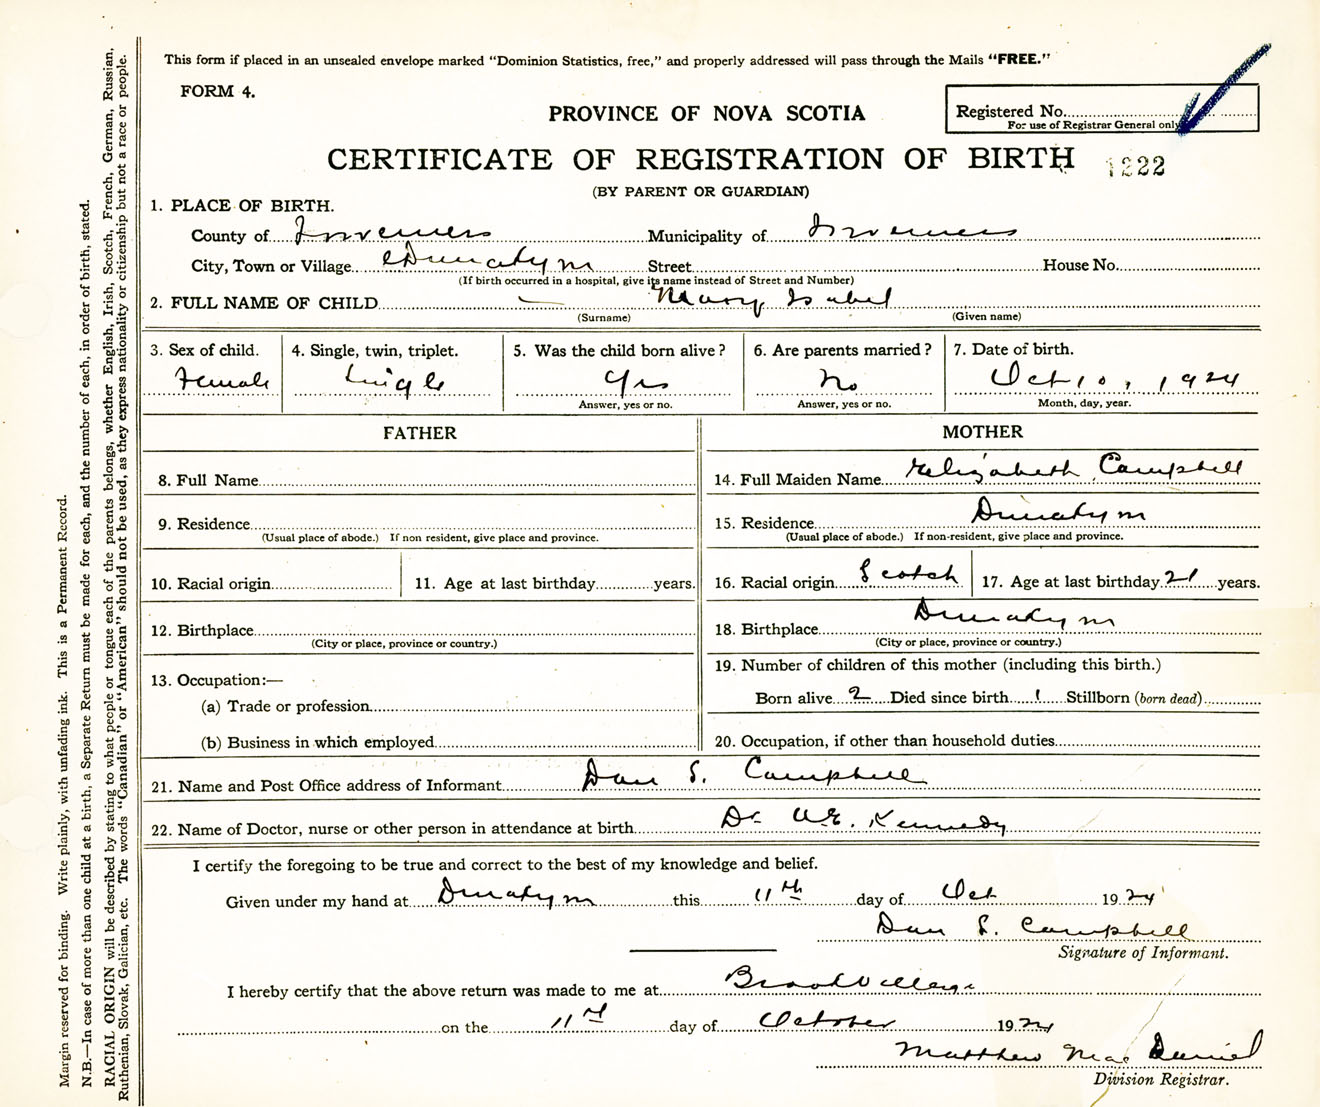 This form if placed in an unsealed envelope marked "Dominion Statistics, free," and properly addressed will pass through the Mails "FREE."
FORM 4.
PROVINCE OF NOVA SCOTIA
Registered No.
For use of Registrar General only
CERTIFICATE OF REGISTRATION OF BIRTH
1222
(BY PARENT OR GUARDIAN)
1. PLACE OF BIRTH.
County of Inverness Municipality of Inverness
City, Town or Village Street House No.
(If birth occurred in a hospital, give its name instead of Street and Number)
2. FULL NAME OF CHILD — Mary Isabel
(Surname) (Given name)
3. Sex of child. 4. Single, twin, triplet. 5. Was the child born alive? 6. Are parents married? 7. Date of birth.
Female Single Yes No Oct 10, 1924
Answer, yes or no. Answer, yes or no. Month, day, year.
FATHER MOTHER
8. Full Name 14. Full Maiden Name Elizabeth Campbell
9. Residence 15. Residence
(Usual place of abode.) If non resident, give place and province. (Usual place of abode.) If non-resident, give place and province.
10. Racial origin 11. Age at last birthday years. 16. Racial origin Scotch 17. Age at last birthday 21 years.
12. Birthplace 18. Birthplace
(City or place, province or country.) (City or place, province or country.)
19. Number of children of this mother (including this birth.)
13. Occupation:—
Born alive 2 Died since birth 1 Stillborn (born dead)
(a) Trade or profession
(b) Business in which employed 20. Occupation, if other than household duties
21. Name and Post Office address of Informant Dan S. Campbell
22. Name of Doctor, nurse or other person in attendance at birth Dr. Kennedy
I certify the foregoing to be true and correct to the best of my knowledge and belief.
Given under my hand at this 11th day of Oct 1924
Dan S. Campbell
Signature of Informant.
I hereby certify that the above return was made to me at Brook Village
on the 11th day of October 1924
Matthew MacDaniel
Division Registrar.
Margin reserved for binding. Write plainly, with unfading ink. This is a Permanent Record.
N.B.—In case of more than one child at a birth, a Separate Return must be made for each, and the number of each, in order of birth, stated.
RACIAL ORIGIN will be described by stating to what people or tongue each of the parents belongs, whether English, Irish, Scotch, French, German, Russian,
Ruthenian, Slovak, Galician, etc. The words "Canadian" or "American" should not be used, as they express nationality or citizenship but not a race or people.